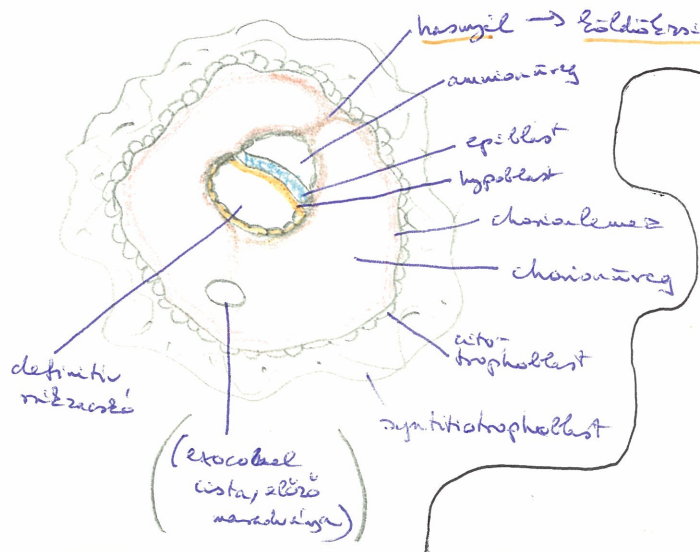 hasnyél → köldökzsi
amnionüreg
epiblast
hypoblast
chorionlemez
chorionüreg
cito-
trophoblast
syntitiotrophoblast
definitiv
szikzacskó
(exocoel
cista, előző
maradványa)